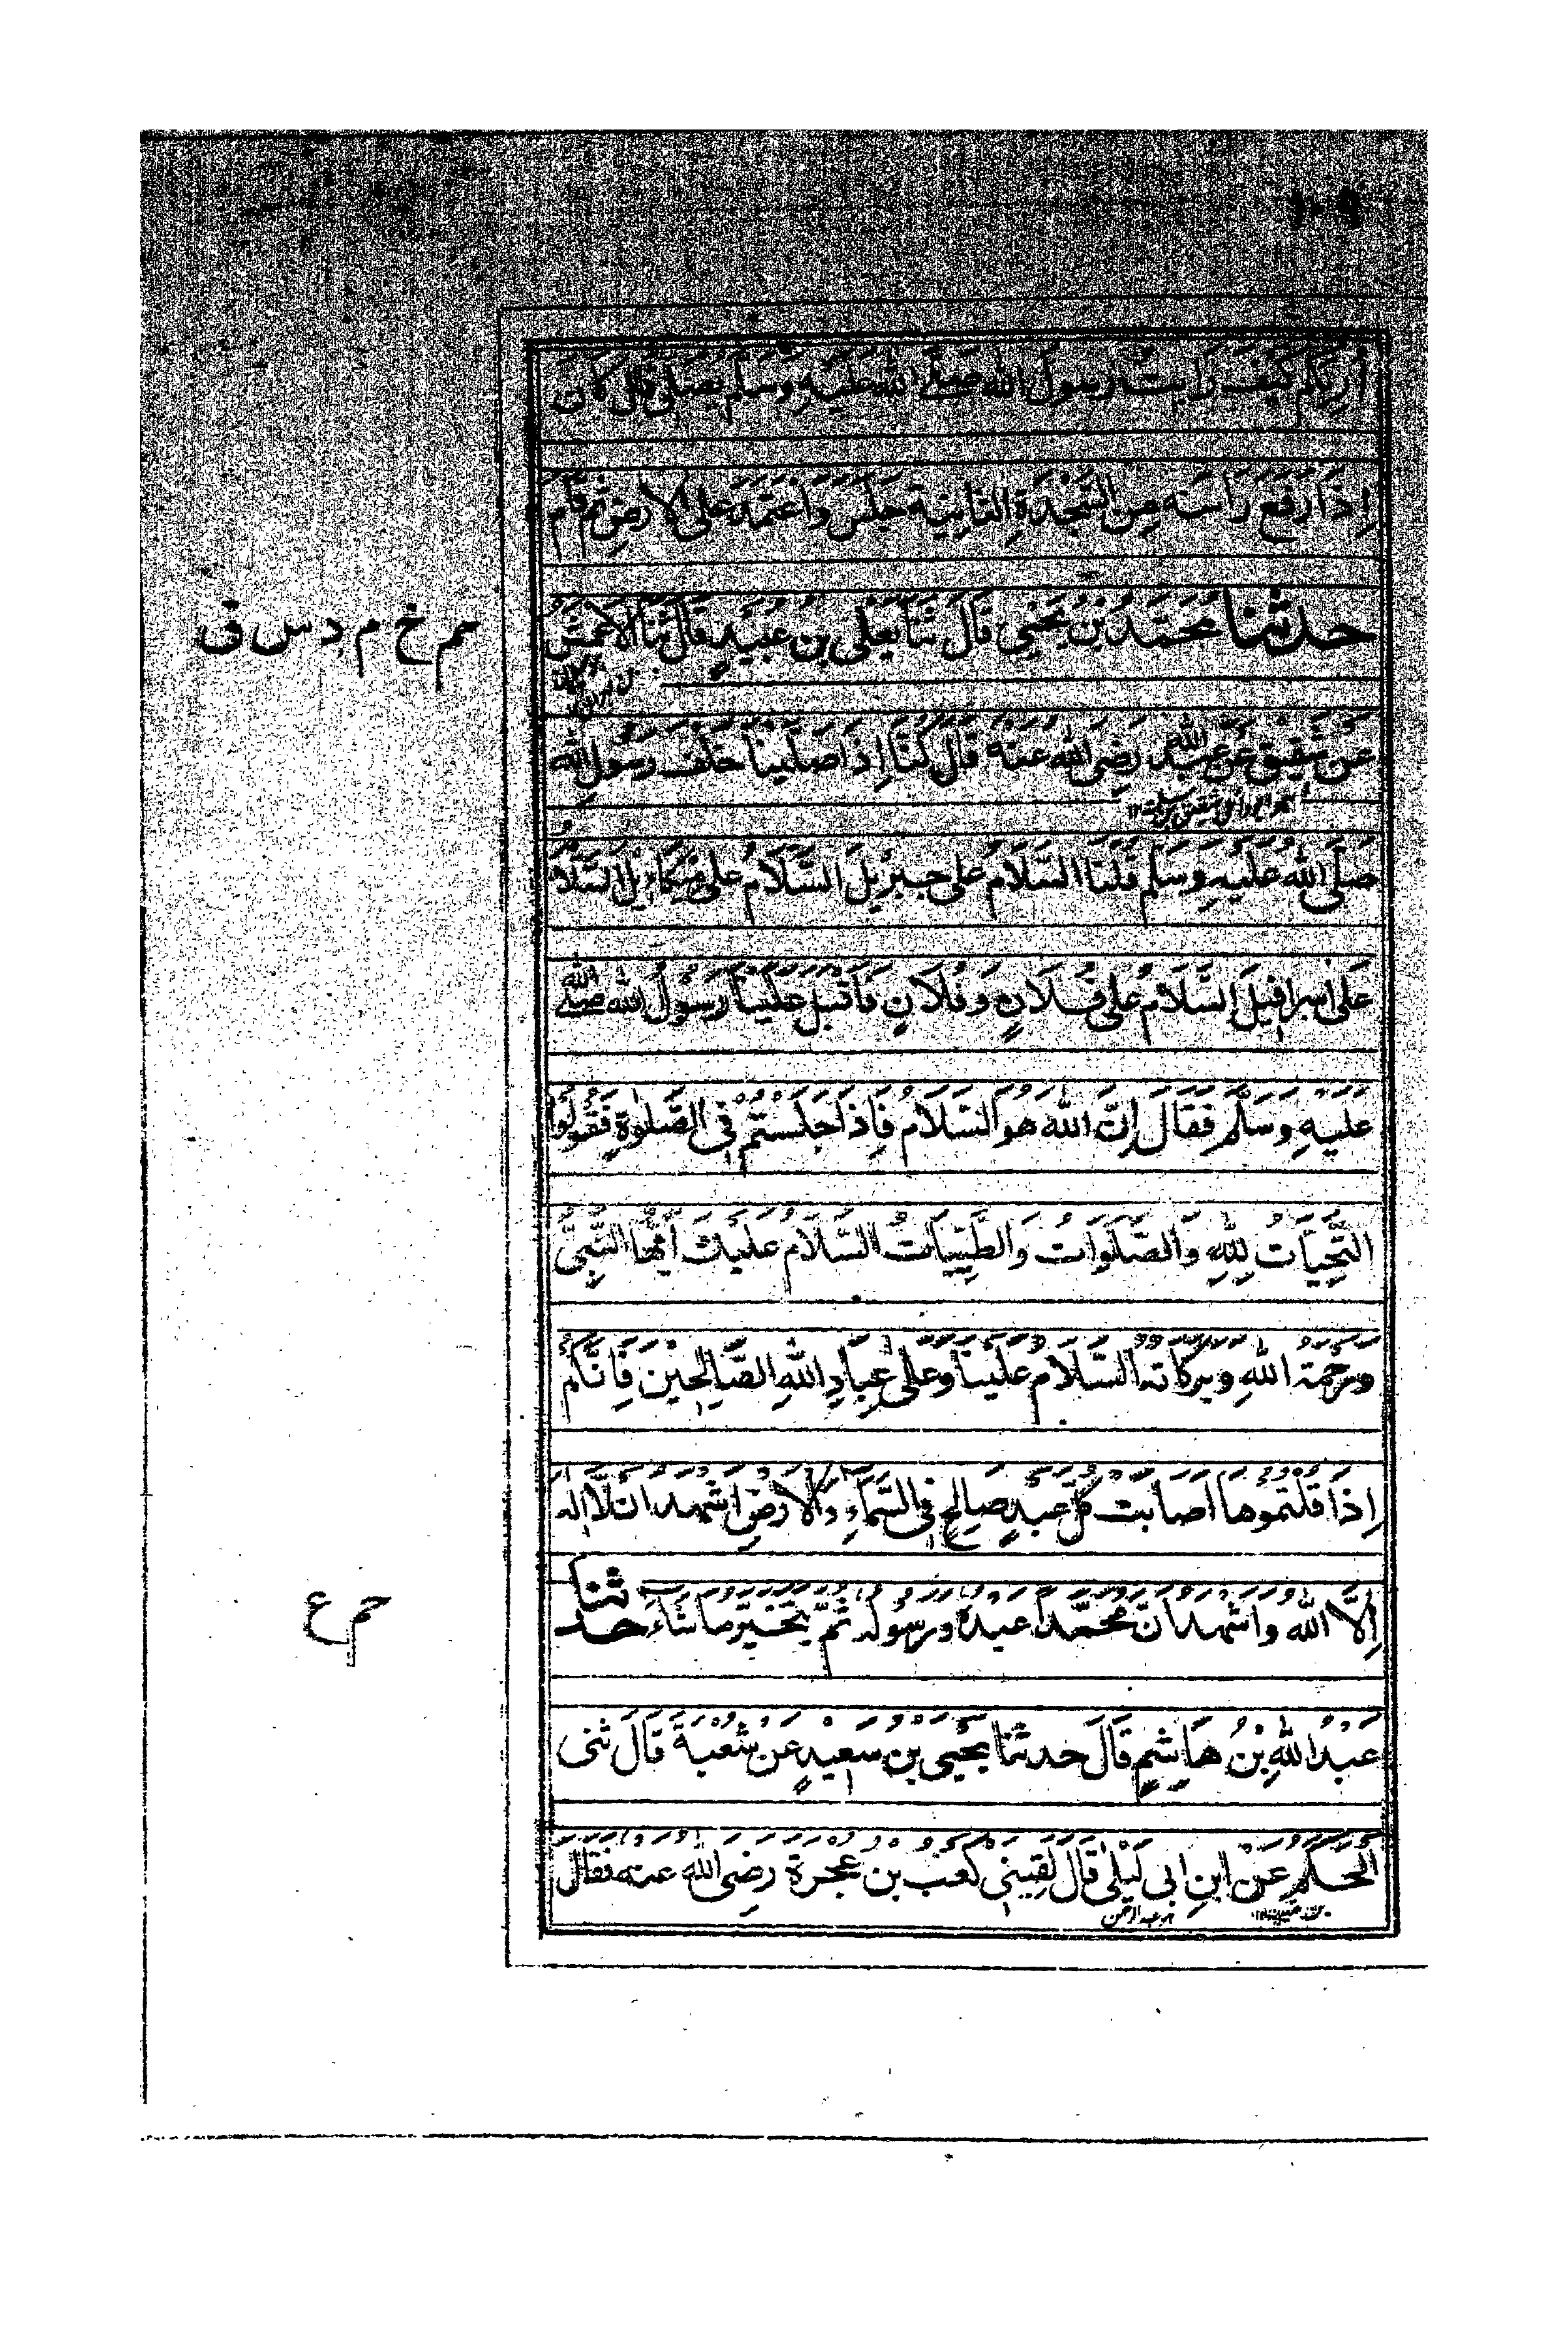 ١٠٩
أريكم كيف رأيت رسول الله صلى الله عليه وسلم يصلي قال كان
إذا رفع رأسه من السجدة الثانية جلس واعتمد على الأرض ثم قام
حدثنا محمد بن يحيى قال ثنا يعلى بن عبيد قال ثنا الأعمش
حم خ م د س ق
عن شقيق عن عبد الله رضي الله عنه قال كنا إذا صلينا خلف رسول الله
صلى الله عليه وسلم قلنا السلام على جبريل السلام على ميكائيل السلام
على إسرافيل السلام على فلان وفلان فأقبل علينا رسول الله صلى الله
عليه وسلم فقال إن الله هو السلام فإذا جلستم في الصلوة فقولوا
التحيات لله والصلوات والطيبات السلام عليك أيها النبي
ورحمة الله وبركاته السلام علينا وعلى عباد الله الصالحين فإنكم
إذا قلتموها أصابت كل عبد صالح في السماء والأرض أشهد أن لا إله
إلا الله وأشهد أن محمدا عبده ورسوله ثم يتخير ما شاء حدثنا
حم ع
عبد الله بن هاشم قال حدثنا يحيى بن سعيد عن شعبة قال ثنى
الحكم عن ابن أبي ليلى قال لقيني كعب بن عجرة رضي الله عنه فقال
عبد الرحمن